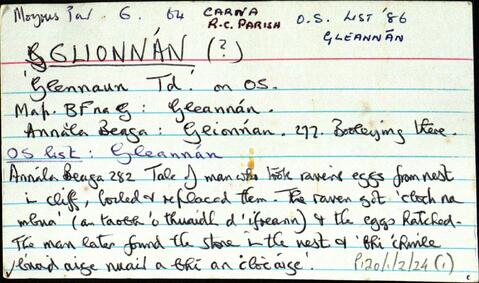 Moyrus Par G. 64 CARNA R.C. PARISH O.S. LIST '86 GLEANNÁN
GLIONNÁN (?)
'Glennaun Td.' on OS.
Map. BF na G: Gleannán.
Annála Beaga: Gleionnan. 277. Booleying there.
OS list: Gleannán
Annála Beaga 282 Tale of man who took raven's eggs from nest
in cliff, boiled & replaced them. The raven got 'cloch na
mbua' (an taobh ó thuaidh d'ifreann) & the eggs hatched.
The man later found the stone in the nest & 'bhí 'chuile
bhuaidh aige nuair a bhí an chloc aige'.
P120/1/2/24 (1)